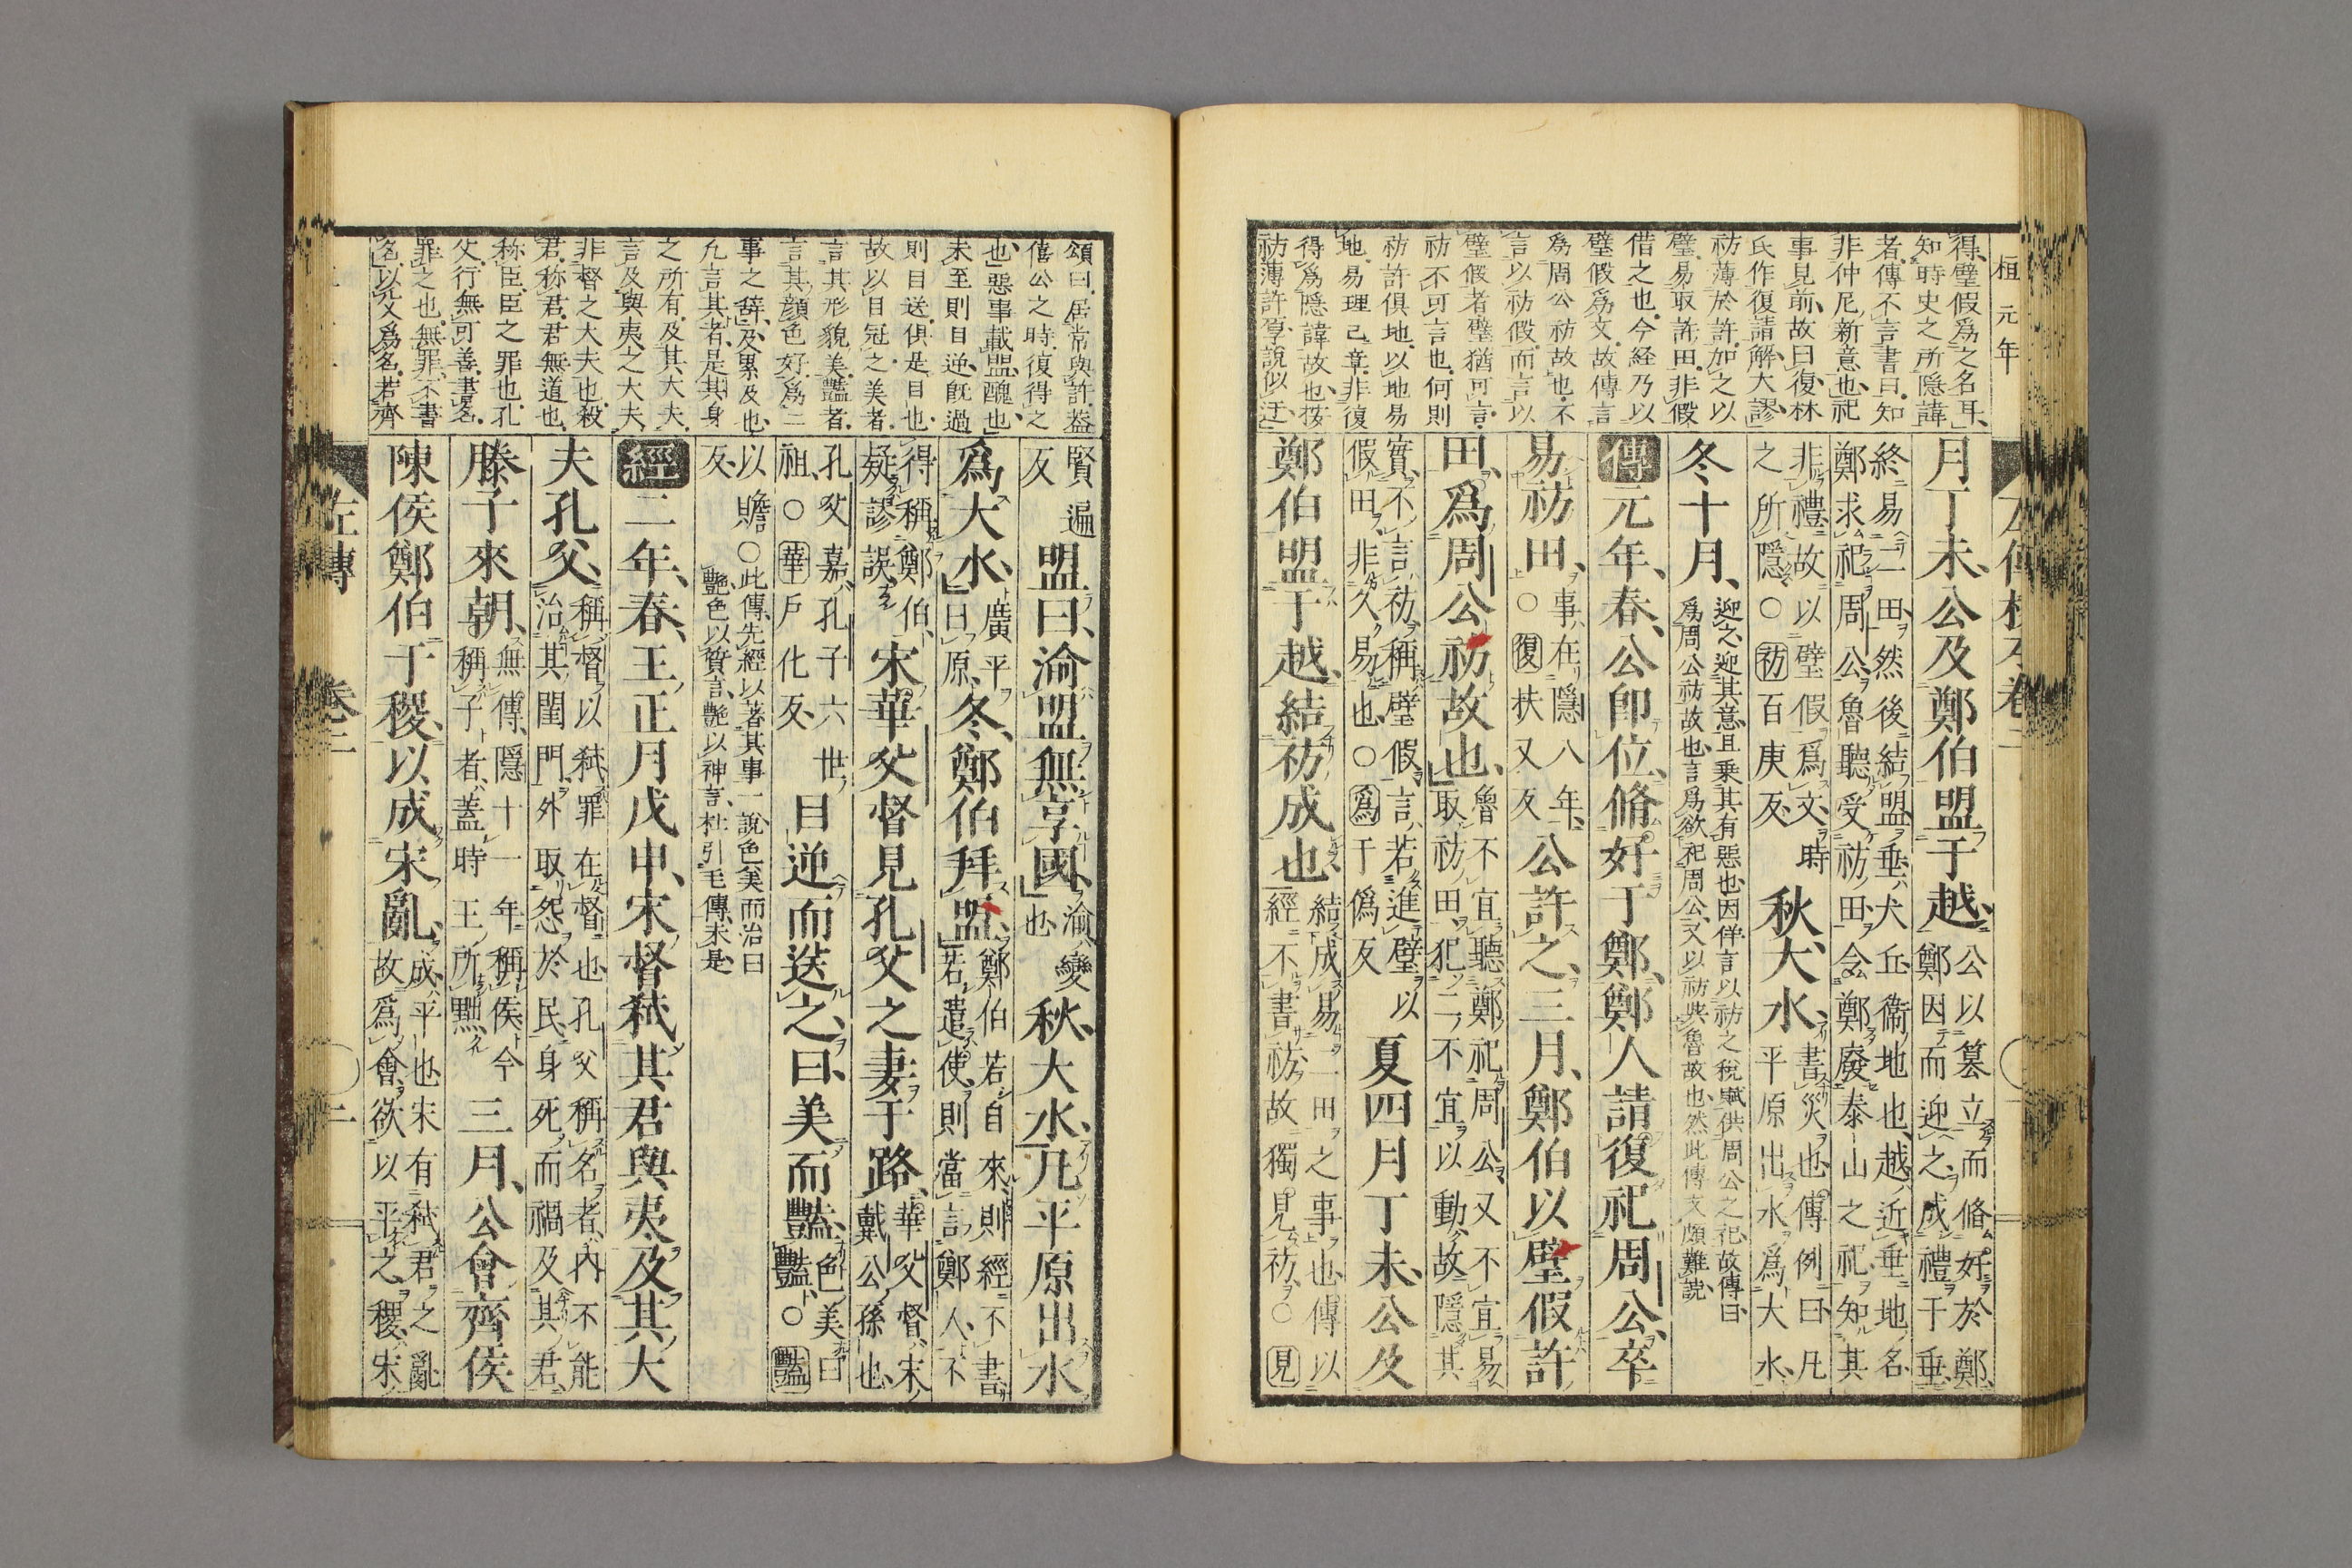 桓元年
得璧假爲之名耳
知時史之所隱諱
者傳不言書曰知
非仲尼新意也祀
事見前故曰復林
氏作復請解大謬
祊薄於許加之以
璧易取許田非假
借之也今経乃以
璧假爲文故傳言
爲周公祊故也不
言以祊假而言以
璧假者璧猶可言
祊不可言也何則
祊許俱地以地易
地易理已章非復
得爲隱諱故也按
祊薄許厚說似迂
月丁未公及鄭伯盟于越
公以篡立而脩好於鄭
鄭因而迎之成禮于垂
終易二田然後結盟垂犬丘衞地也越近垂地名
鄭求祀周公魯聽受祊田令鄭廢泰山之祀知其
非禮故以璧假爲文時
之所隱○祊百庚反
秋大水
書災也傳例曰凡
平原出水爲大水
冬十月
迎之迎其意且乗其有惡也因佯言以祊之稅賦供周公之祀故傳曰
爲周公祊故也言爲欲祀周公又以祊與魯故也然此傳文頗難説
傳元年春公卽位脩好于鄭鄭人請復祀周公卒
易祊田
事在隱八年
○復扶又反
公許之三月鄭伯以璧假許
田爲周公祊故也
魯不宜聽鄭祀周公又不宜易
取祊田犯二不宜以動故隱其
實不言祊稱璧假言若進璧以
假田非久易也○爲于僞反
夏四月丁未公及
鄭伯盟于越結祊成也
結成易二田之事也傳以
經不書祊故獨見祊○見
頌曰居常與許蓋
僖公之時復得之
也惡事載盟醜也
未至則目逆既過
則目送俱是目也
故以目冠之美者
言其形貌美豔者
言其顔色好爲二
事之辭及累及也
凡言其者是其身
之所有及其大夫
言及與夷之大夫
非督之大夫也殺
君称君君無道也
称臣臣之罪也孔
父行無可善書名
罪之也無罪不書
名以孔父爲名若齊
賢遍
反
盟曰渝盟無享國
渝變
也
秋大水凡平原出水
爲大水
廣平
曰原
冬鄭伯拜盟
鄭伯若自來則經不書
若遣使則當言鄭人不
得稱鄭伯
疑謬誤
宋華父督見孔父之妻于路
華父督宋
戴公孫也
孔父嘉孔子六世
祖○華戶化反
目逆而送之曰美而豔
色美曰
豔○豔
以贍
反
○此傳先經以著其事一說色美而治曰
艶色以質言艶以神言杜引毛傳未是
經二年春王正月戊申宋督弒其君與夷及其大
夫孔父
稱督以弒罪在督也孔父稱名者內不能
治其閨門外取怨於民身死而禍及其君
滕子來朝
無傳隱十一年稱侯今
稱子者蓋時王所黜
三月公會齊侯
陳侯鄭伯于稷以成宋亂
成平也宋有弒君之亂
故爲會欲以平之稷宋
左傳 卷二 二